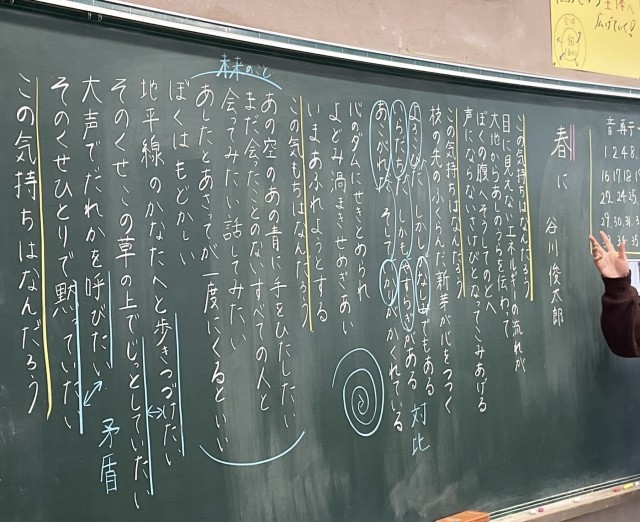 主体へ
広げていく!
音再子
1.2.4.8.
16.17.18.19
22.24.25.
29.30.31.3
春に
谷川俊太郎
この気もちはなんだろう
目に見えないエネルギーの流れが
大地からあしのうらを伝わって
ぼくの腹へ そうしてのどへ
声にならないさけびとなってこみあげる
この気持ちはなんだろう
枝の先のふくらんだ新芽が心をつつく
よろこびだ しかしかなしみでもある
いらだちだ しかもやすらぎがある
対比
あこがれだ そしていかりがかくれている
心のダムにせきとめられ
よどみ渦まきせめぎあい
いまあふれようとする
この気もちはなんだろう
あの空のあの青に手をひたしたい
まだ会ったことのないすべての人と
会ってみたい 話してみたい
未来のこと
あしたとあさってが一度にくるといい
ぼくはもどかしい
地平線のかなたへと歩きつづけたい
そのくせこの草の上でじっとしていたい
矛盾
大声でだれかを呼びたい
そのくせひとりで黙っていたい
この気持ちはなんだろう